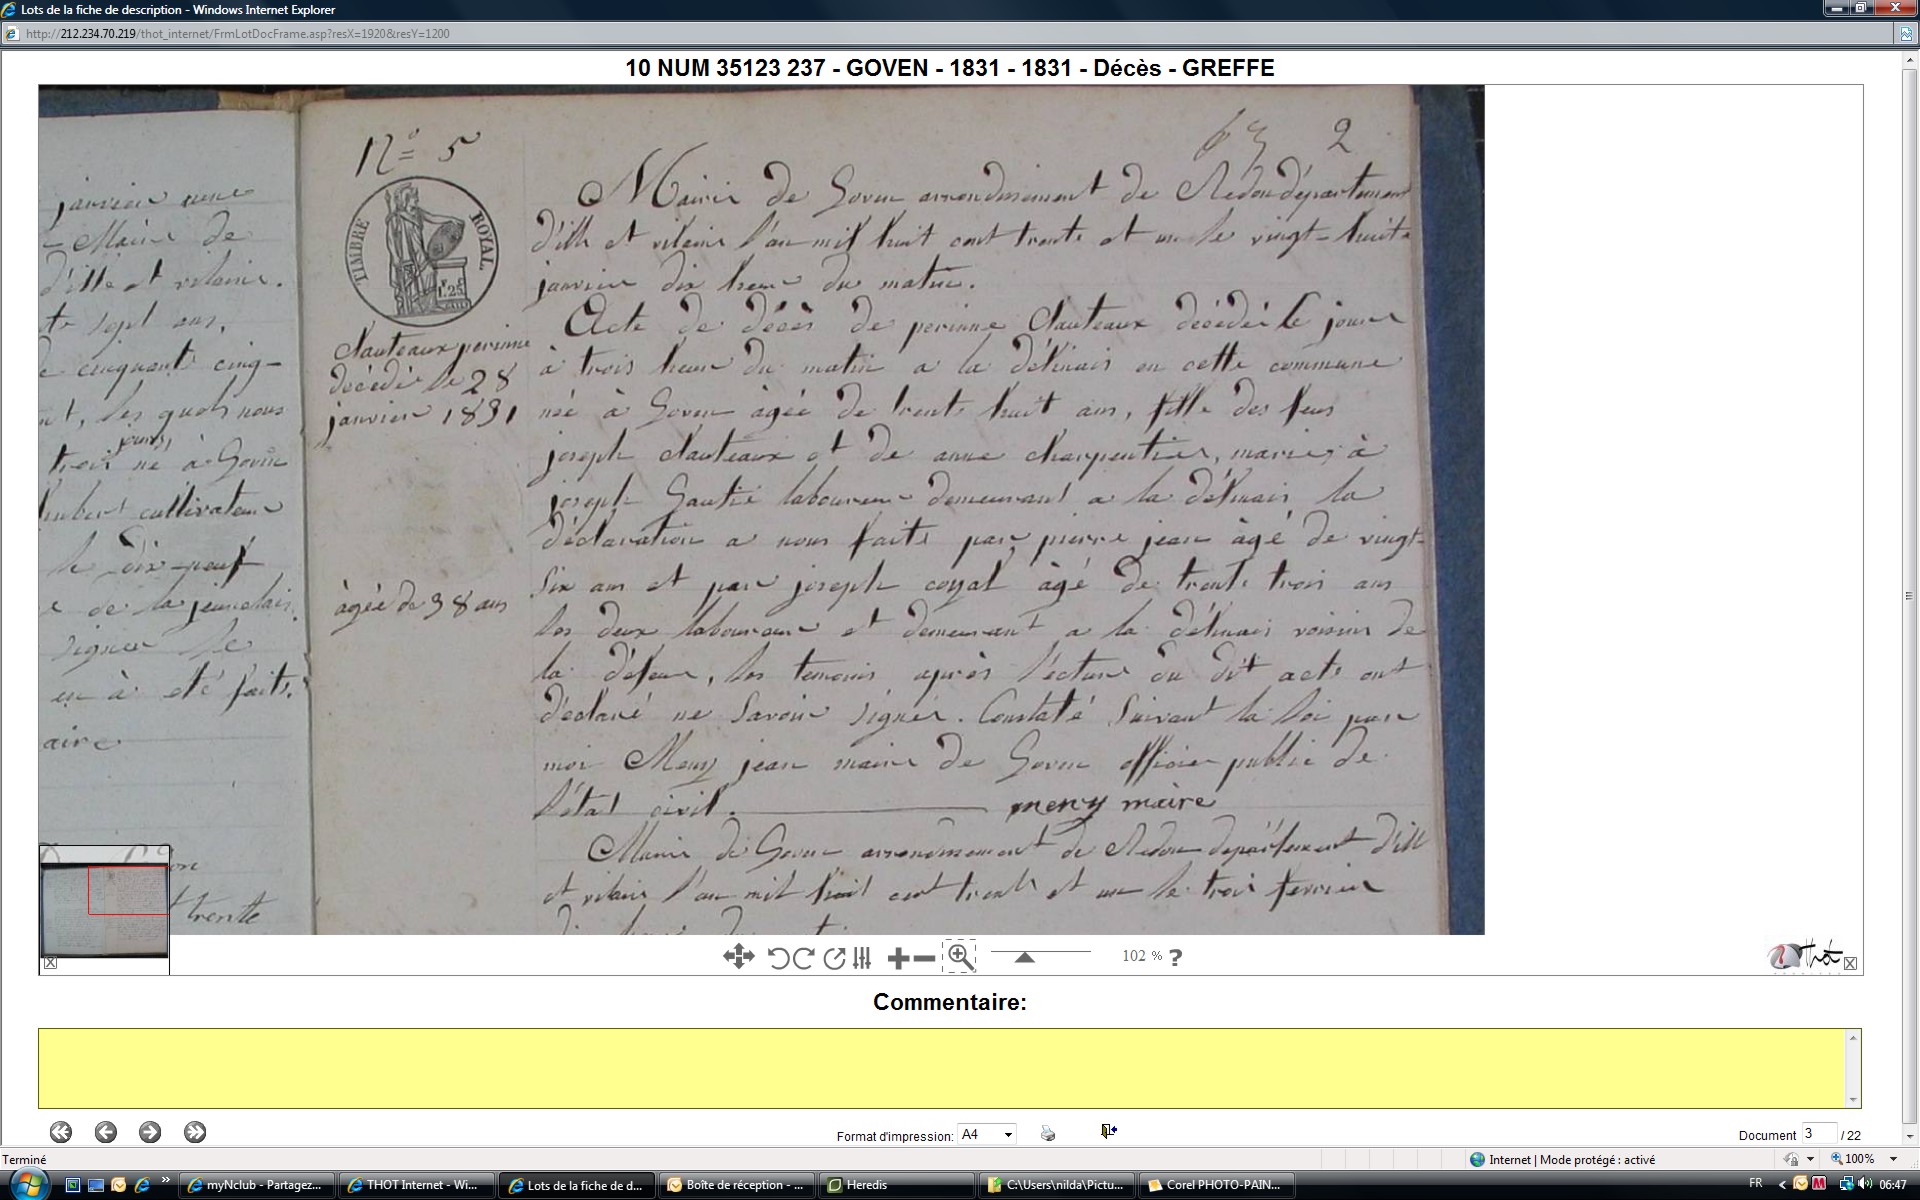 Lots de la fiche de description - Windows Internet Explorer
http://212.234.70.219/thot_internet/FrmLotDocFrame.asp?resX=1920&resY=1200
10 NUM 35123 237 - GOVEN - 1831 - 1831 - Décès - GREFFE
janvier
Maire de
d'ille et vilaine.
sept ans,
cinquante cinq-
les quels nous
jours,
trois né à Goven
cultivateur
le dix-neuf
de la
signer
à eté faite.
aire
trente
N° 5
TIMBRE ROYAL
1.25
Clauteaux perinne
décédée le 28
janvier 1831
âgée de 38 ans
2
Mairie de Goven arrondissement de Redon département
d'ille et vilaine l'an mil huit cent trente et un le vingt-huit
janvier dix heur du matin.
Acte de décès de perinne Clauteaux décédée le jour
à trois heur du matin a la délinais en cette commune
née à Goven âgée de trente huit ans, fille des feus
joseph Clauteaux et de anne charpentier, mariée à
joseph Gautié laboureur demeurant a la délinais la
déclaration a nous faite par pierre jean âgé de vingt-
six ans et par joseph coyal âgé de trente trois ans
les deux laboureur et demeurant a la délinais voisin de
la défeur, les temoins après lécture du dit acte ont
déclaré ne savoir signer. Constaté suivant la loi par
moi Meny jean maire de Goven officier public de
l'état civil. meny maire
Mairie de Goven arrondissement de Redon département d'ille
et vilaine l'an mil huit cent trente et un le trois fevrier
102 % ?
Thot
Commentaire:
Format d'impression: A4
Document 3 / 22
Terminé
Internet | Mode protégé : activé
100%
myNclub - Partagez...
THOT Internet - Wi...
Lots de la fiche de d...
Boîte de réception - ...
Heredis
C:\Users\nilda\Pictu...
Corel PHOTO-PAIN...
FR
06:47